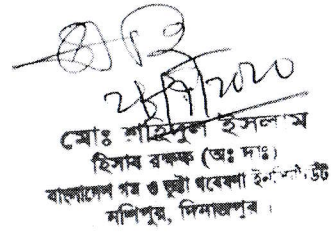 মোঃ শহিদুল ইসলাম
হিসাব রক্ষক (অঃ দাঃ)
বাংলাদেশ গম ও ভুট্টা গবেষণা ইনস্টিটিউট
নশিপুর, দিনাজপুর।